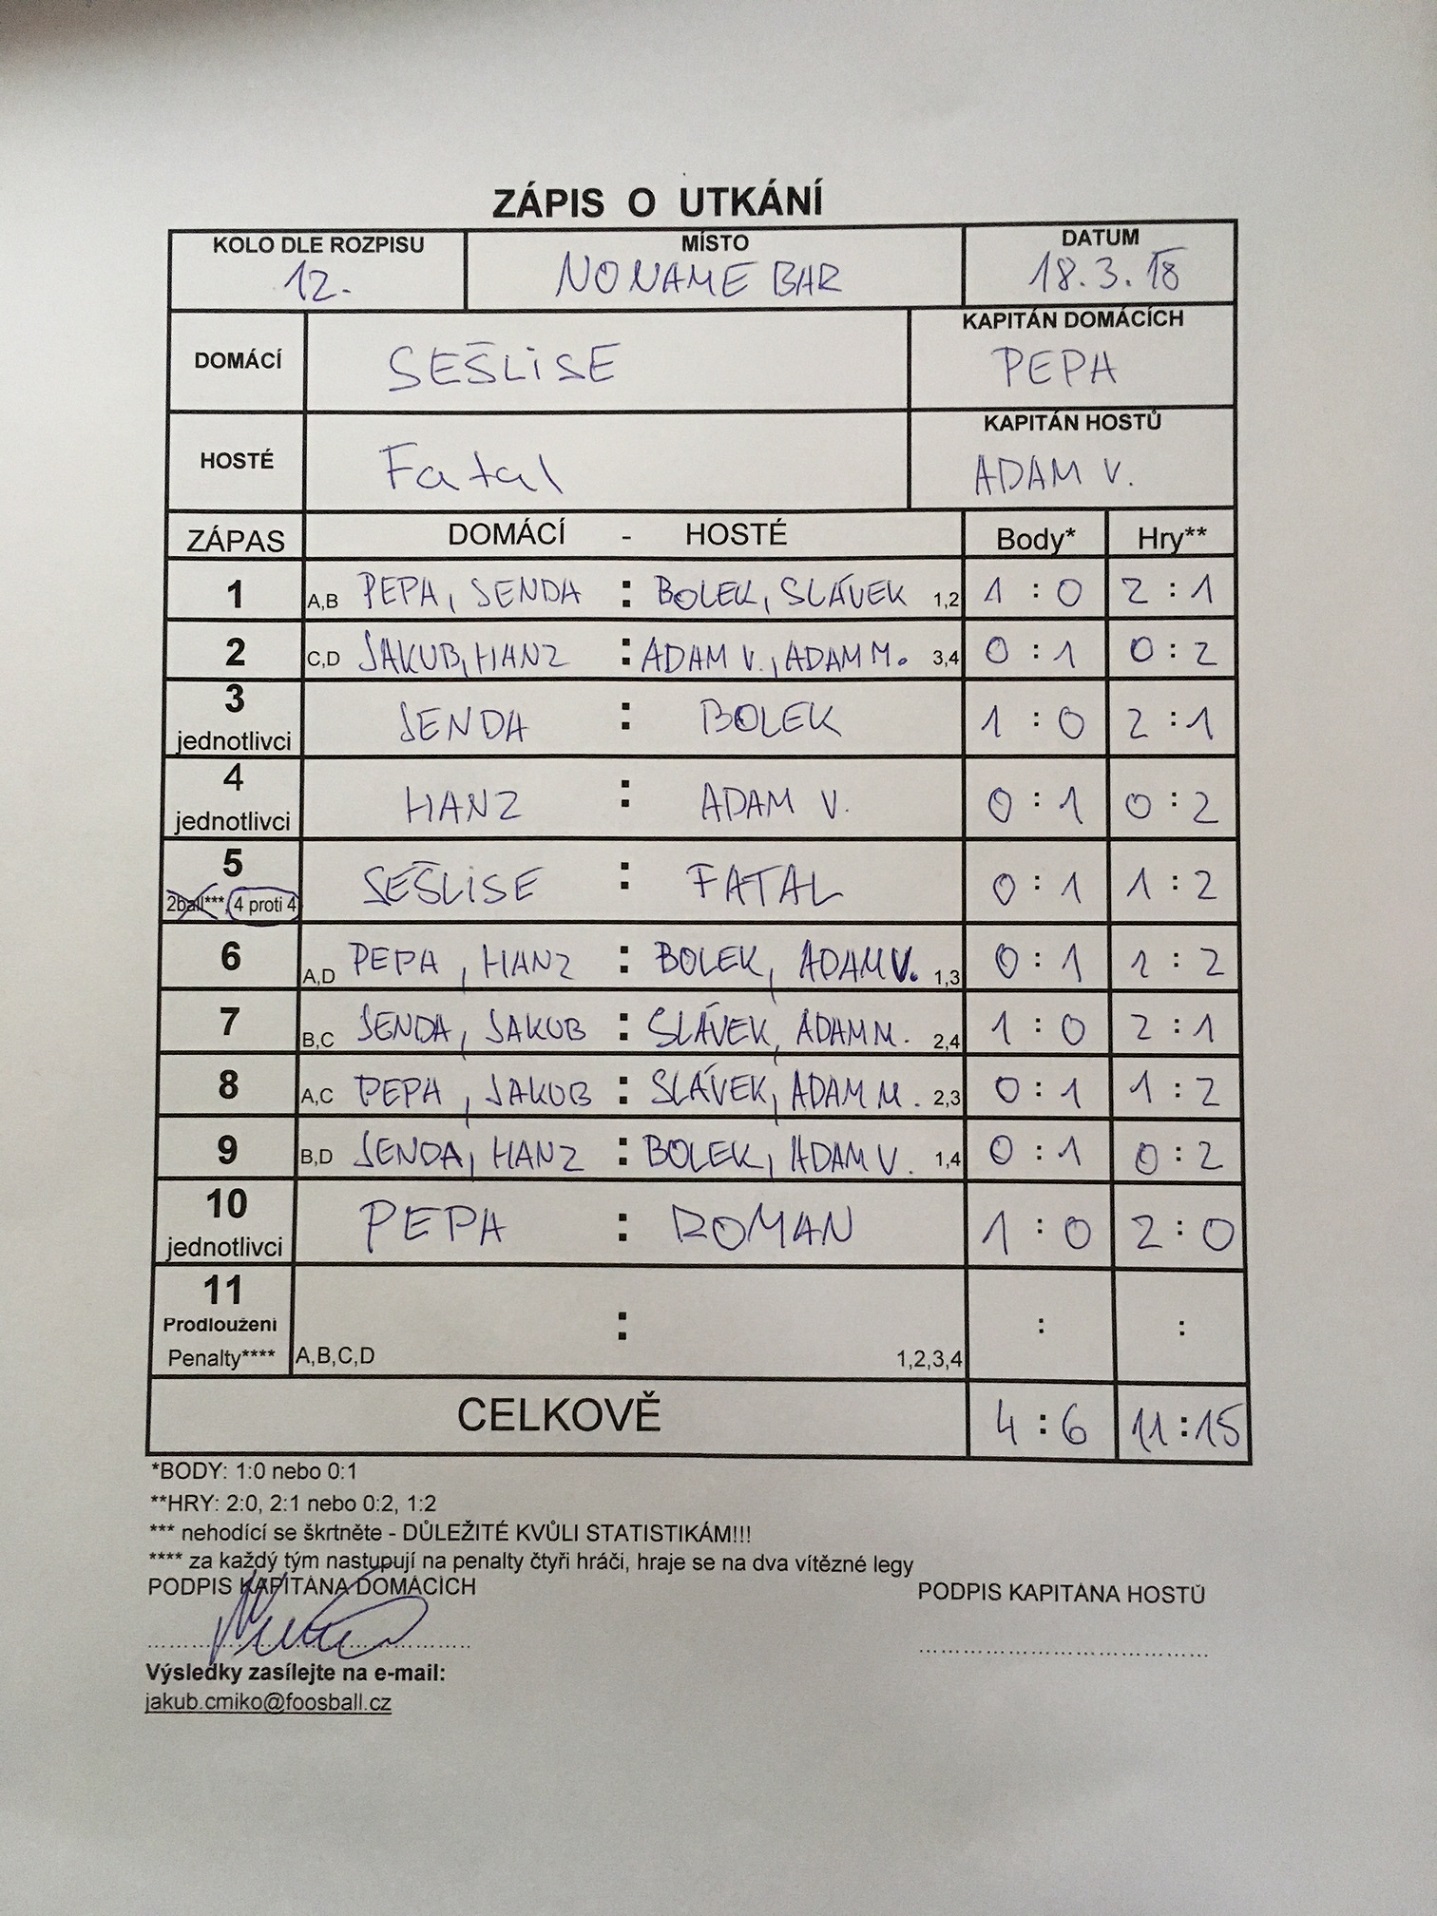 ZÁPIS O UTKÁNÍ
KOLO DLE ROZPISU MÍSTO DATUM
12. NONAME BAR 18.3.18
DOMÁCÍ SEŠLISE KAPITÁN DOMÁCÍCH
PEPA
HOSTÉ Fatal KAPITÁN HOSTŮ
ADAM V.
ZÁPAS DOMÁCÍ - HOSTÉ Body* Hry**
1 A,B PEPA, SENDA : BOLEK, SLÁVEK 1,2 1 : 0 2 : 1
2 C,D JAKUB, HANZ : ADAM V., ADAM M. 3,4 0 : 1 0 : 2
3 jednotlivci SENDA : BOLEK 1 : 0 2 : 1
4 jednotlivci HANZ : ADAM V. 0 : 1 0 : 2
5 2ball***, 4 proti 4 SEŠLISE : FATAL 0 : 1 1 : 2
6 A,D PEPA, HANZ : BOLEK, ADAM V. 1,3 0 : 1 1 : 2
7 B,C SENDA, JAKUB : SLÁVEK, ADAM M. 2,4 1 : 0 2 : 1
8 A,C PEPA, JAKUB : SLÁVEK, ADAM M. 2,3 0 : 1 1 : 2
9 B,D SENDA, HANZ : BOLEK, ADAM V. 1,4 0 : 1 0 : 2
10 jednotlivci PEPA : ROMAN 1 : 0 2 : 0
11 : : :
Prodloužení
Penalty**** A,B,C,D 1,2,3,4
CELKOVĚ 4 : 6 11 : 15
*BODY: 1:0 nebo 0:1
**HRY: 2:0, 2:1 nebo 0:2, 1:2
*** nehodící se škrtněte - DŮLEŽITÉ KVŮLI STATISTIKÁM!!!
**** za každý tým nastupují na penalty čtyři hráči, hraje se na dva vítězné legy
PODPIS KAPITÁNA DOMÁCÍCH PODPIS KAPITÁNA HOSTŮ
Výsledky zasílejte na e-mail:
jakub.cmiko@foosball.cz